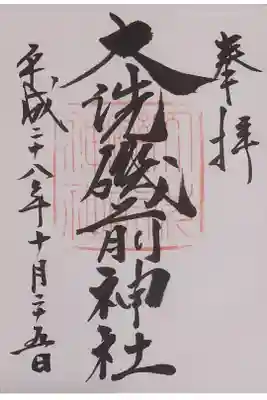 奉拝
大洗磯前神社
平成二十八年十月二十五日